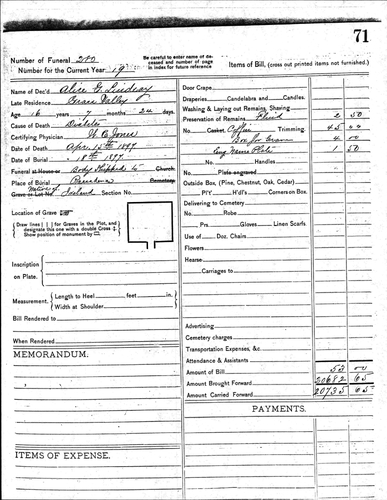 71
Number of Funeral 210
Number for the Current Year 19
Be careful to enter name of deceased and number of page in index for future reference
Items of Bill, (cross out printed items not furnished.)
Name of Dec'd Alice G. Lindsay
Late Residence Grass Valley
Age 16 years 7 months 24 days.
Cause of Death Diabetes
Certifying Physician W. C. Jones
Date of Death Apr. 15th 1897
Date of Burial " 18th 1897
Funeral at House or Body Shipped to Church.
Place of Burial Cemetery.
Grave or Lot No. Section No.
Native of Ireland
Location of Grave
Draw lines [ ] for Graves in the Plot, and designate this one with a double Cross
Show position of monument by
Inscription on Plate.
Measurement. Length to Heel feet in.
Width at Shoulder
Bill Rendered to
When Rendered
MEMORANDUM.
ITEMS OF EXPENSE.
Door Crape
Draperies Candelabra and Candles.
Washing & Laying out Remains, Shaving
Preservation of Remains Fluid 2 50
No. Casket Coffin Trimming. 45 00
Box for Grave
Eng Name Plate 1 50
No. Handles
No. Plate engraved
Outside Box, (Pine, Chestnut, Oak, Cedar)
P'l'y H'd'l's Corners on Box.
Delivering to Cemetery
No. Robe
Prs. Gloves Linen Scarfs
Use of Doz. Chairs
Flowers
Hearse
Carriages to
Advertising
Cemetery charges
Transportation Expenses, &c.
Attendance & Assistants
Amount of Bill 53 00
Amount Brought Forward 20682 65
Amount Carried Forward 20735 65
PAYMENTS.